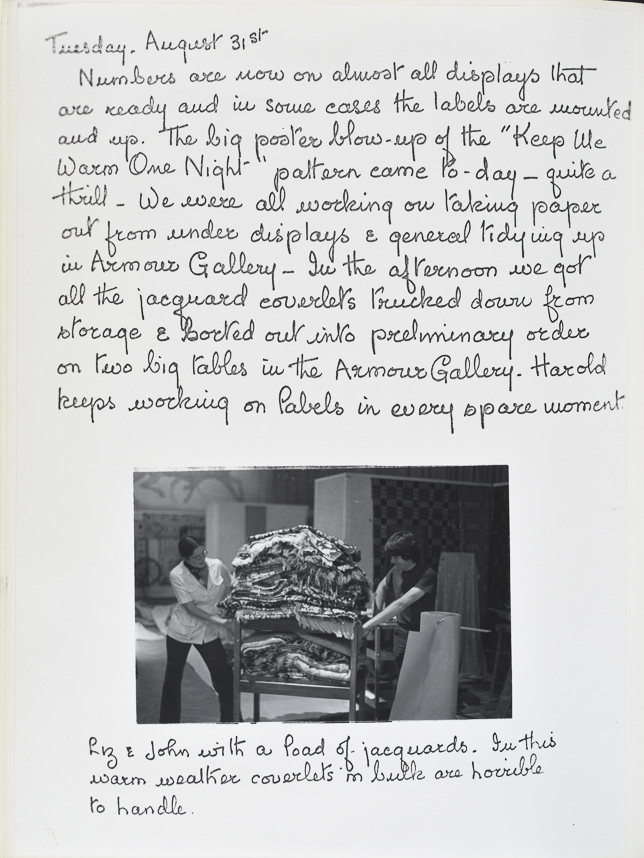 Tuesday. August 31st
Numbers are now on almost all displays that
are ready and in some cases the labels are mounted
and up. The big poster blow-up of the "Keep Me
Warm One Night" pattern came to-day – quite a
thrill – We were all working on taking paper
out from under displays & general tidying up
in Armour Gallery – In the afternoon we got
all the jacquard coverlets trucked down from
storage & sorted out into prelminary order
on two big tables in the Armour Gallery. Harold
keeps working on labels in every spare moment.
Liz & John with a load of jacquards. In this
warm weather coverlets in bulk are horrible
to handle.